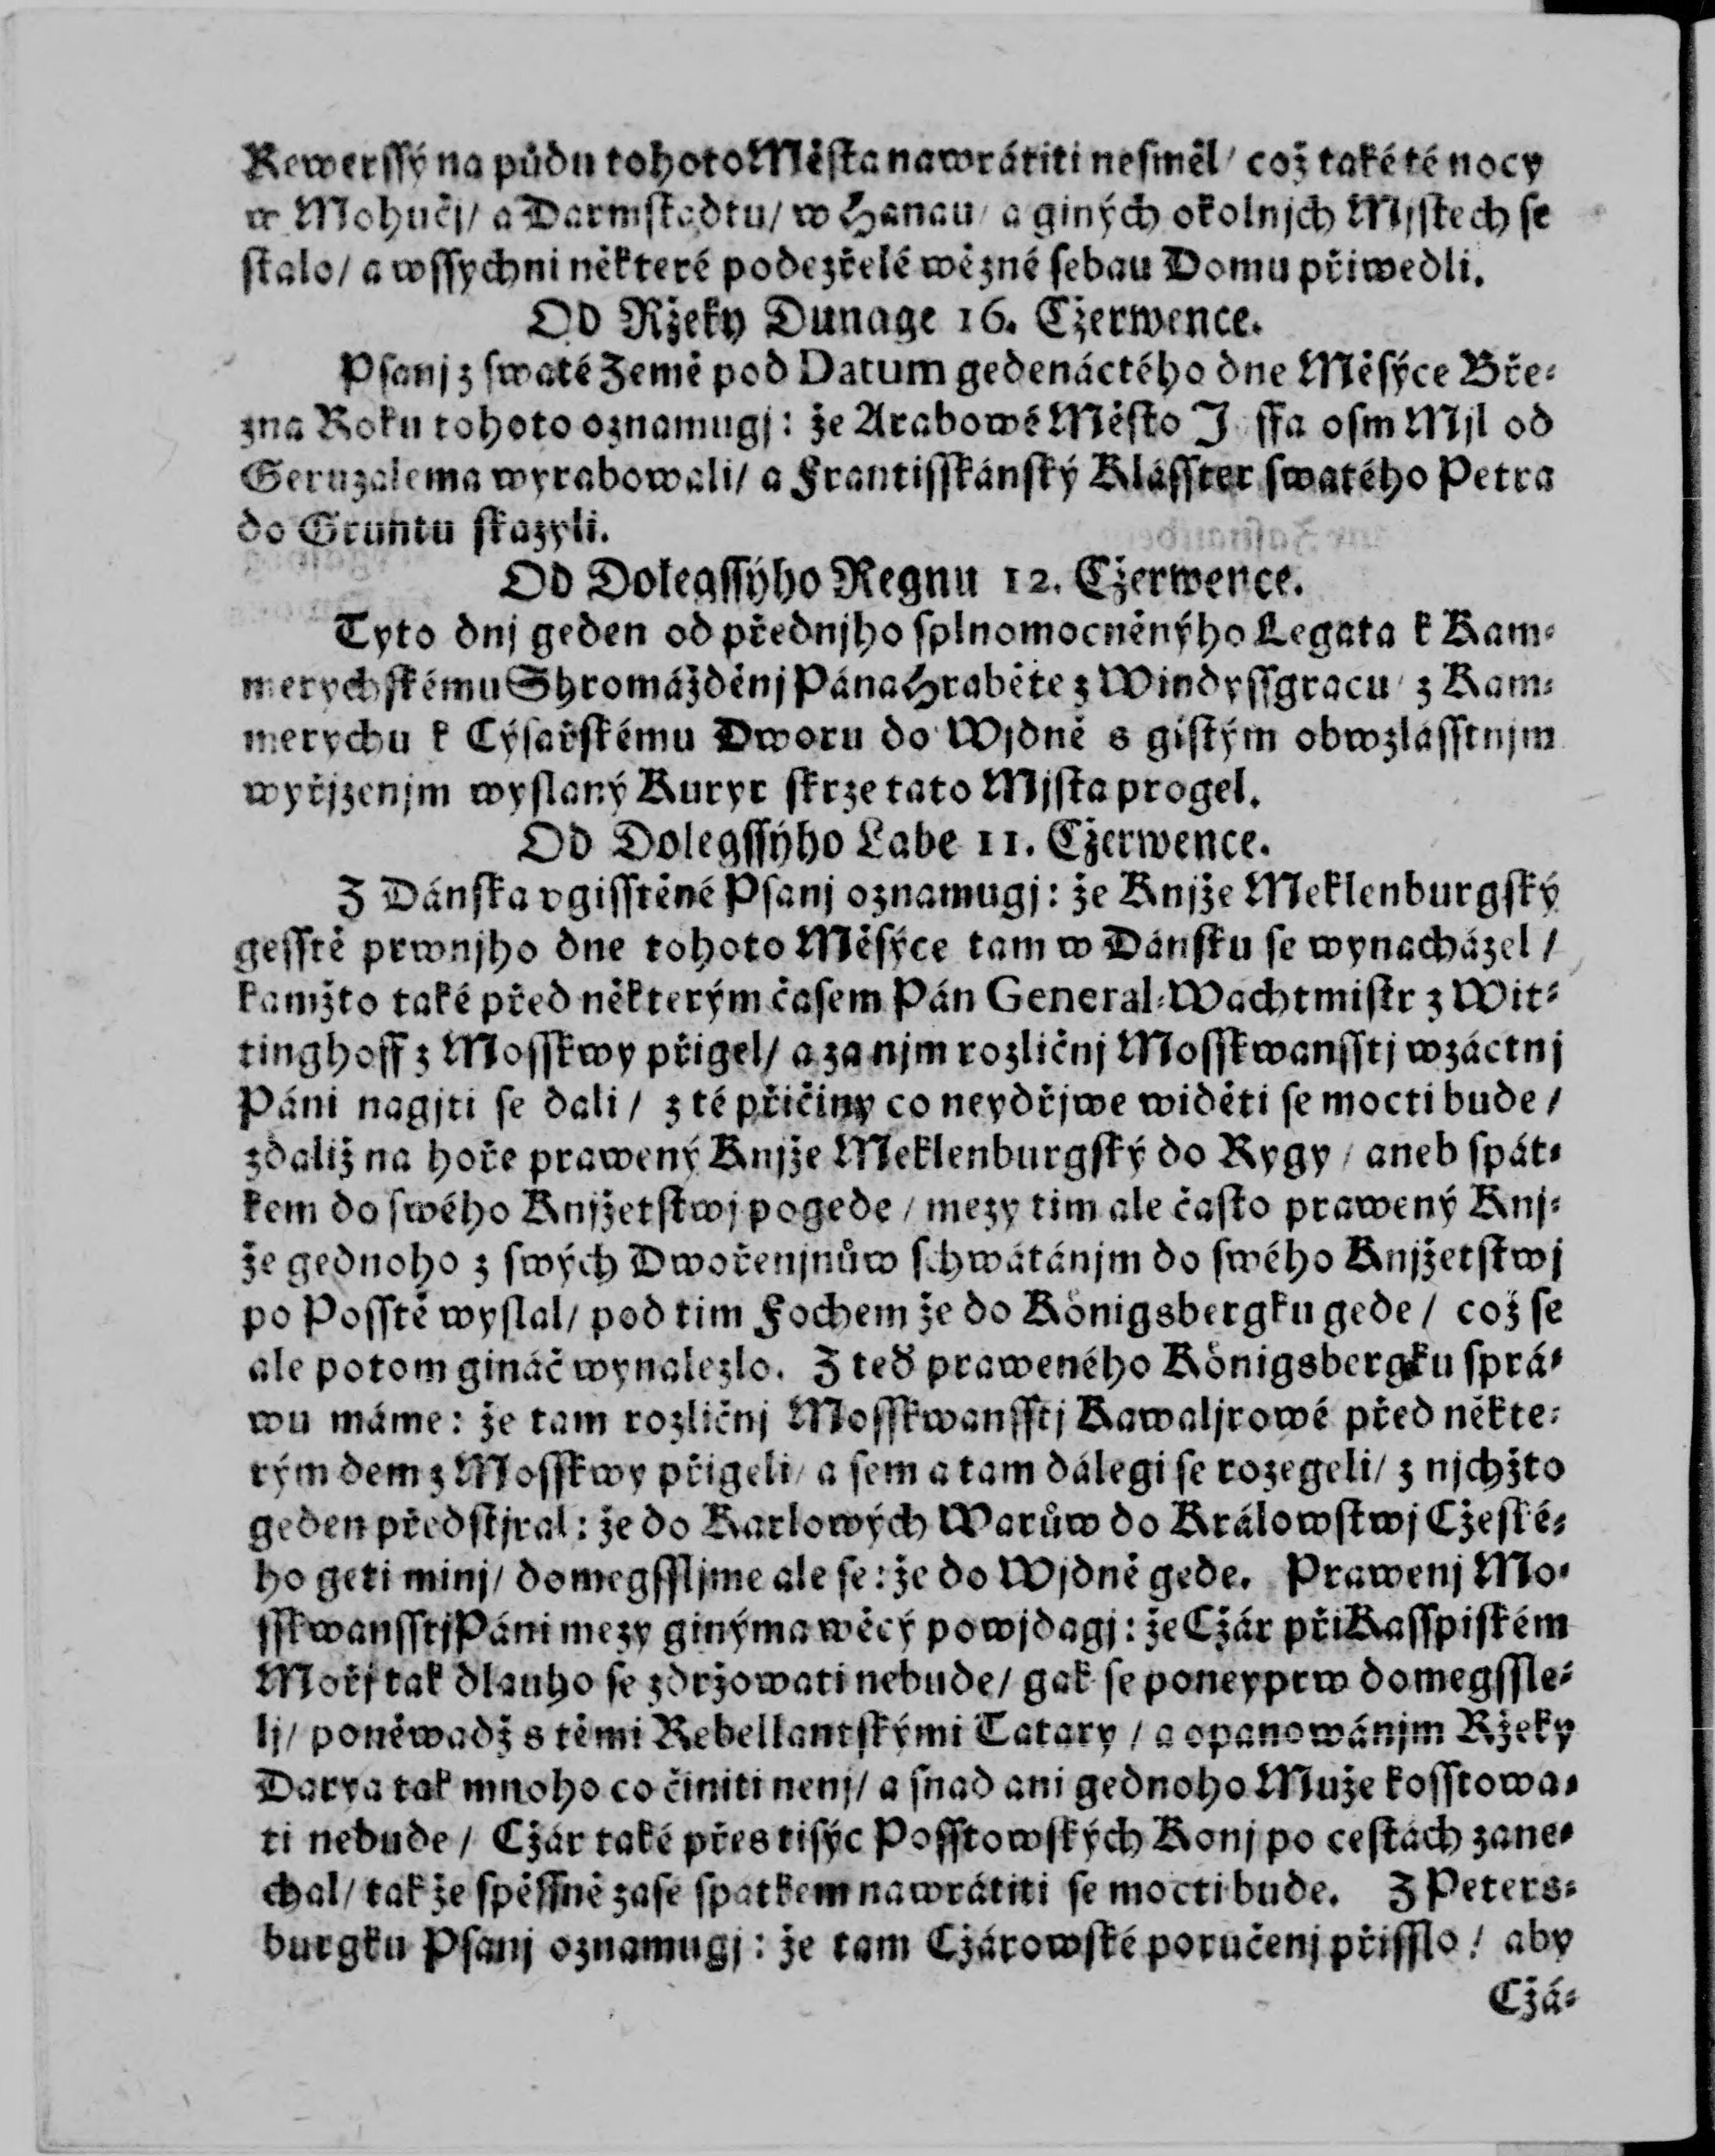 Rewerſſý na půdu tohoto Města nawrátiti neſměl / což také té nocy
w Mohučj / a Darmſtadtu / w Hanau / a giných okolnjch Mjſtech ſe
ſtalo / a wſſychni některé podezřelé wězně ſebau Domu přiwedli.
Od Ržeky Dunage 16. Cžerwence.
Pſanj z ſwaté Země pod Datum gedenáctého dne Měſýce Bře⸗
zna Roku tohoto oznamugj: že Arabowé Měſto J ſſa oſm Mjl od
Geruzalema wyrabowali / a Frantiſſkánſký Kláſſter ſwatého Petra
do Gruntu ſkazyli.
Od Dolegſſýho Regnu 12. Cžerwence.
Tyto dnj geden od přednjho ſplnomocněnýho Legata k Kam⸗
merychſkému Shromážděnj Pána Hraběte z Windyſſgracu / z Kam⸗
merychu k Cýſařſkému Dworu do Wjdně s giſtým obwzláſſtnjm
wyřjzenjm wyſlaný Kuryr ſkrze tato Mjſta progel.
Od Dolegſſýho Labe 11. Cžerwence.
Z Dánſka vgiſſtěné Pſanj oznamugj: že Knjže Meklenburgſký
geſſtě prwnjho dne tohoto Měſýce tam w Dánſku ſe wynacházel /
kamžto také před některým čaſem Pán General⸗Wachtmiſtr z Wit⸗
tinghoff z Moſſkwy přigel / a za njm rozličnj Moſſkwanſſtj wzáctnj
Páni nagjti ſe dali / z té přičiny co neydřjwe widěti ſe mocti bude /
zdaliž na hoře prawený Knjže Meklenburgſký do Rygy / aneb ſpát⸗
kem do ſwého Knjžetſtwj pogede / mezy tim ale čaſto prawený Knj⸗
že gednoho z ſwých Dwořenjnůw ſchwátánjm do ſwého Knjžetſtwj
po Poſſtě wyſlal / pod tim Fochem že do Königsbergku gede / což ſe
ale potom gináč wynalezlo. Z teď praweného Königsbergku ſprá⸗
wu máme: že tam rozličnj Moſſkwanſſtj Kawaljrowé před někte⸗
rým dem z Moſſkwy přigeli / a ſem a tam dálegi ſe rozegeli / z njchžto
geden předſtjral: že do Karlowých Warůw do Králowſtwj Cžeſké⸗
ho geti minj / domegſſljme ale ſe: že do Wjdně gede. Prawenj Mo⸗
ſſkwanſſtj Páni mezy ginýma wěcý powjdagj: že Cžár při Kaſſpiſkém
Mořj tak dlauho ſe zdržowati nebude / gak ſe poneyprw domegſſle⸗
lj / poněwadž s těmi Rebellantſkými Tatary / a opanowánjm Ržeky
Darya tak mnoho co činiti nenj / a ſnad ani gednoho Muže koſſtowa⸗
ti nebude / Cžár také přes tiſýc Poſſtowſkých Konj po ceſtách zane⸗
chal / tak že ſpěſſně zaſe ſpatkem nawrátiti ſe mocti bude. Z Peters⸗
burgku Pſanj oznamugj: že tam Cžárowſké poručenj přiſſlo / aby
Cžá⸗